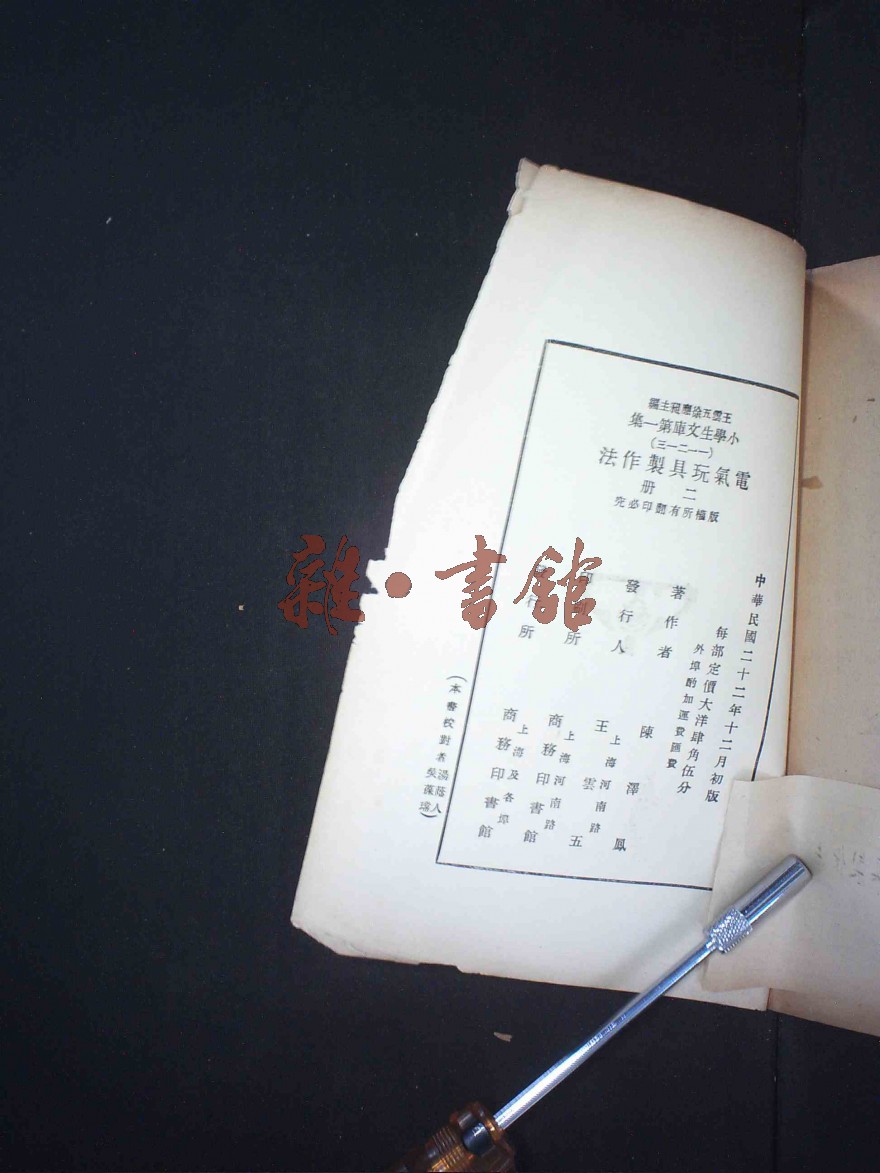 王雲五徐應昶主編
小學生文庫第一集
(一一二一三)
電氣玩具製作法
二册
版權所有翻印必究
中華民國二十二年十二月初版
每部定價大洋肆角伍分
外埠酌加運費匯費
著作者 陳澤鳳
上海河南路
發行人 王雲五
上海河南路
印刷所 商務印書館
上海及各埠
發行所 商務印書館
(本書校對者 人
吳藻瑞)
雜·書館